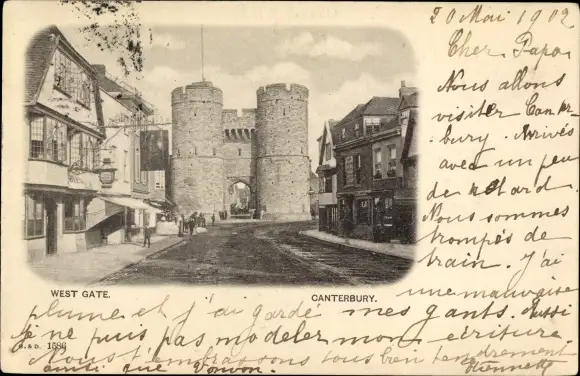 20 Mai 1902
Cher Papa
Nous allons
visiter Canter-
bury. Arrivés
avec un peu
de retard.
Nous sommes
trompés de
train. J'ai
une mauvaise
WEST GATE.
CANTERBURY.
plume et j'ai gardé mes gants. Aussi
je ne puis pas modeler mon écriture.
G. & D. 1586
Nous t'embrassons tous bien tendrement
ainsi que